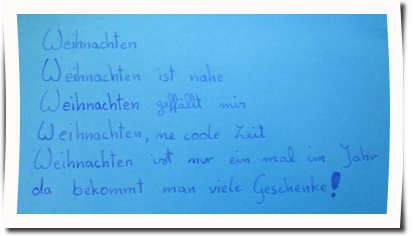 Weihnachten
Weihnachten ist nahe
Weihnachten geffällt mir
Weihnachten, ne coole Zeit
Weihnachten ist nur ein mal im Jahr
da bekommt man viele Geschenke!